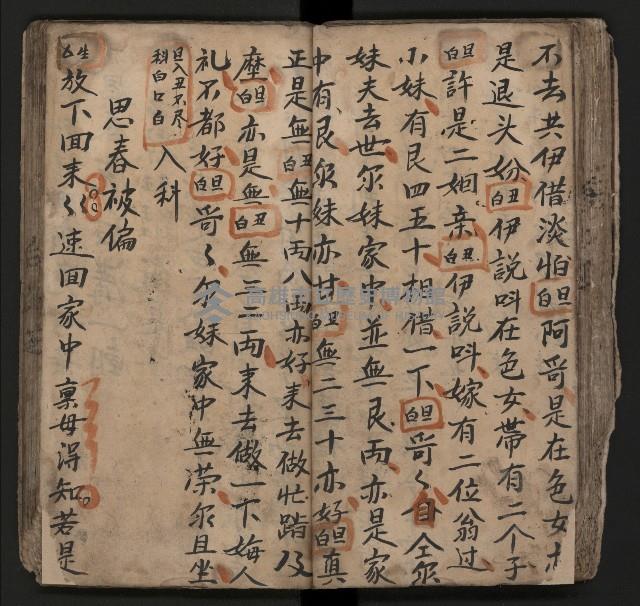 不去共伊借淡怕旦白阿哥是在色女
是退头妢丑白伊說呌在色女帶有二个子
旦白許是二姻亲丑白伊說呌嫁有二位翁过
小妹有艮四五十相借一下旦白哥〻自仝尔
妹夫去世尔妹家出並無艮両亦是家
中有艮尔妹亦甘旦白無二三十亦好旦白真
正是無丑白無十両八両亦好来去做忙踏及
麽旦白亦是無丑白無三二両来去做一下娒人
礼不都好旦白哥〻尔妹家中無荣尔且坐
旦入丑不尽
科白口白
入科
思春被偏
生白放下回来〻速回家中禀母得知若是
高雄市立歷史博物館
KAOHSIUNG MUSEUM OF HISTORY